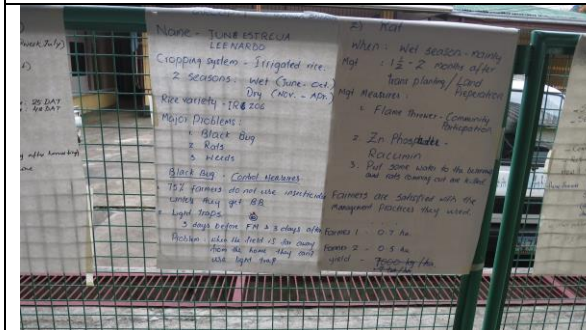 Name - JUNE ESTRELLA
LEENARDO
Cropping system - Irrigated rice.
2 seasons: Wet (June - Oct.)
Dry (Nov. - Apr.)
Rice variety - 206
Major Problems:
1 Black Bug
2 Rats
3 Weeds
Black Bug - Control Measures
75% farmers do not use insecticide
when they get BB
2. Light Traps
3 days before FM & 3 days after
Problem - when the field is far away
from the home they can't
use light trap
2) Rat
When: Wet season - mainly
Mgt : 1½ - 2 months after
transplanting / Land
Preparation
Mgt Measures:
1. Flame Thrower - Community
Participation
2. Zn Phosphide -
Racumin
3. Put some water to the burrows
and rats coming out are killed
Farmers are satisfied with the
management practices they used.
Farmer 1 : 0.7 ha
Farmer 2 - 0.5 ha
yield -
25 DAT